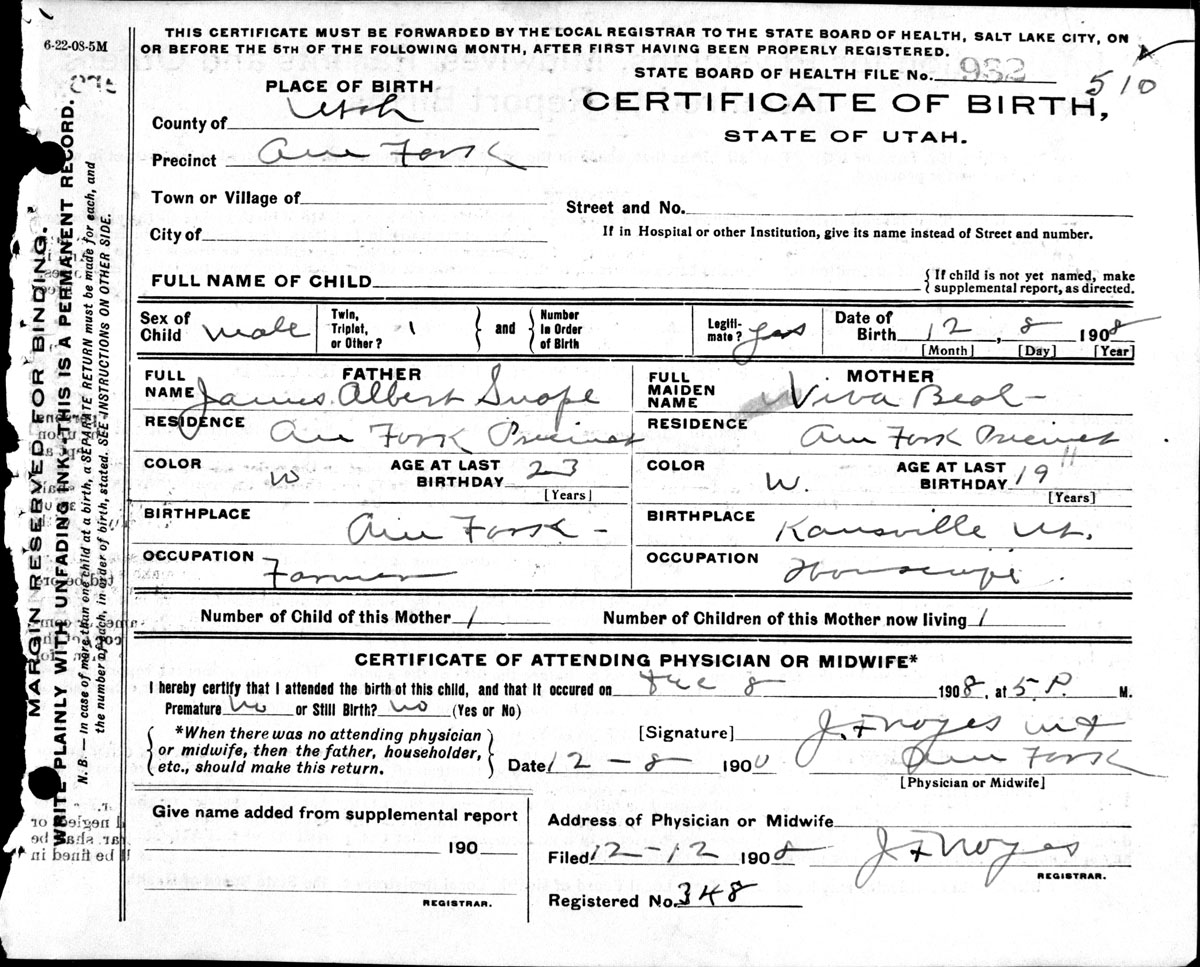 6-22-08-5M
THIS CERTIFICATE MUST BE FORWARDED BY THE LOCAL REGISTRAR TO THE STATE BOARD OF HEALTH, SALT LAKE CITY, ON
OR BEFORE THE 5TH OF THE FOLLOWING MONTH, AFTER FIRST HAVING BEEN PROPERLY REGISTERED.
STATE BOARD OF HEALTH FILE No. 932
510
PLACE OF BIRTH
CERTIFICATE OF BIRTH,
STATE OF UTAH.
County of Utah
Precinct Am Fork
Town or Village of
Street and No.
City of
If in Hospital or other Institution, give its name instead of Street and number.
FULL NAME OF CHILD
{ If child is not yet named, make
{ supplemental report, as directed.
Sex of Child male Twin, Triplet, or Other? 1 } and { Number in Order of Birth Legiti-mate? yes Date of Birth 12, 8 1908
[Month] [Day] [Year]
FATHER
FULL NAME James Albert
RESIDENCE Am Fork Precinct
COLOR W AGE AT LAST BIRTHDAY 23
[Years]
BIRTHPLACE Am Fork -
OCCUPATION Farmer
MOTHER
FULL MAIDEN NAME Viva Beal -
RESIDENCE Am Fork Precinct
COLOR W. AGE AT LAST BIRTHDAY 19
[Years]
BIRTHPLACE Kansville Ut.
OCCUPATION Housewife
Number of Child of this Mother 1 Number of Children of this Mother now living 1
CERTIFICATE OF ATTENDING PHYSICIAN OR MIDWIFE*
I hereby certify that I attended the birth of this child, and that it occured on Dec 8 1908, at 5 P. M.
Premature No or Still Birth? No (Yes or No)
{ *When there was no attending physician
or midwife, then the father, householder,
etc., should make this return. }
[Signature] J. F Noyes MD
Date 12 - 8 190 Am Fork
[Physician or Midwife]
Give name added from supplemental report
190
REGISTRAR.
Address of Physician or Midwife
Filed 12-12 1908 J F Noyes
REGISTRAR.
Registered No. 348
MARGIN RESERVED FOR BINDING.
WRITE PLAINLY WITH UNFADING INK—THIS IS A PERMANENT RECORD.
N. B. — In case of more than one child at a birth, a SEPARATE RETURN must be made for each, and
the number of each, in order of birth, stated. SEE INSTRUCTIONS ON OTHER SIDE.